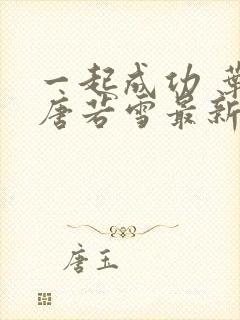 一起成功
唐若雪最新
唐玉